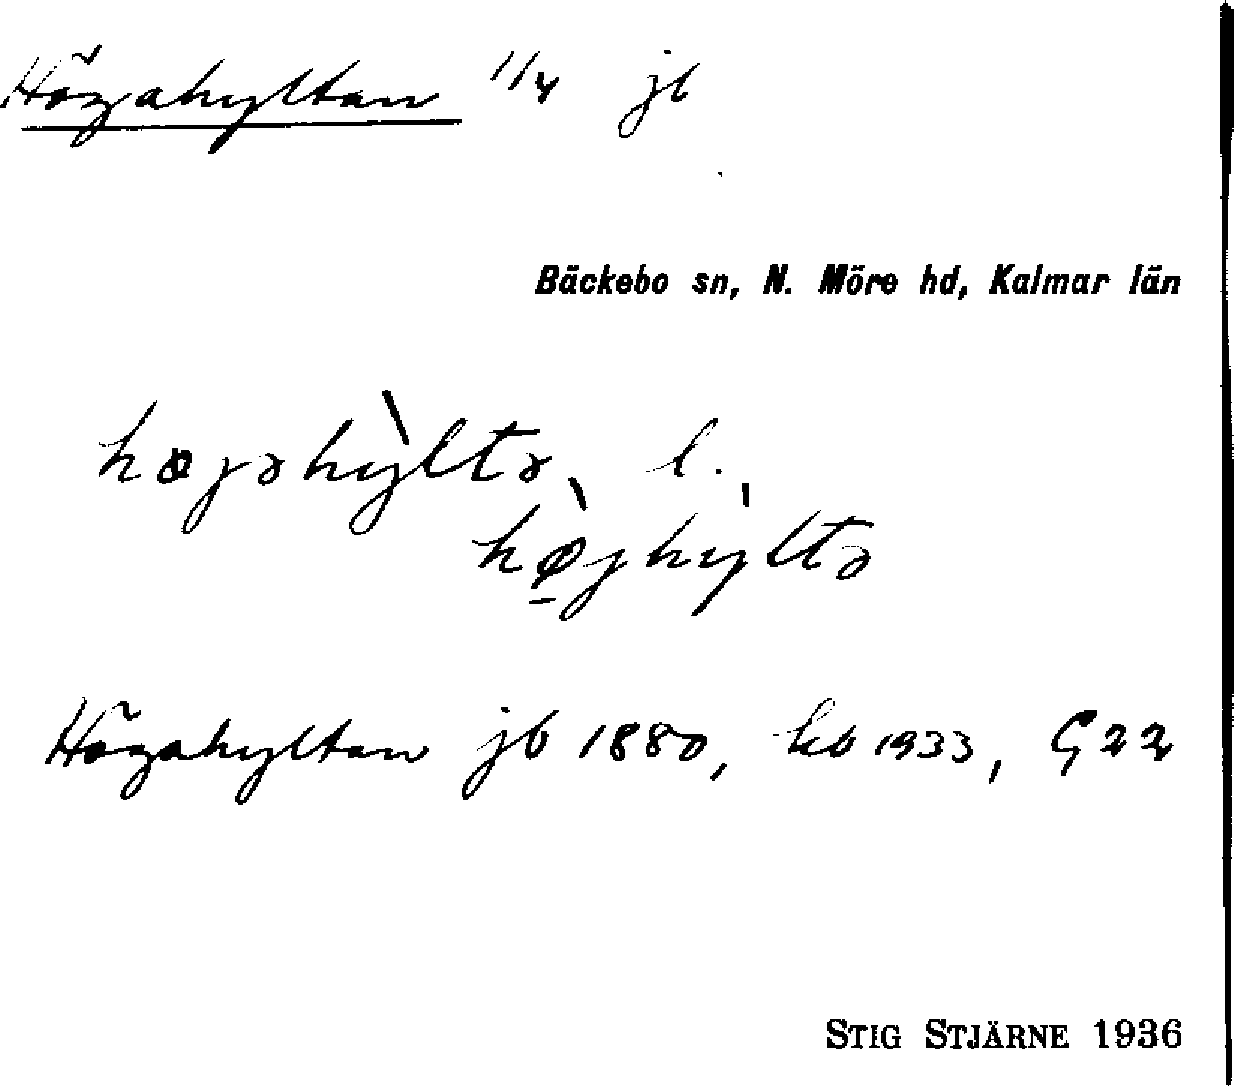 Högahyltan 1/4 jb
Bäckebo sn, N. Möre hd, Kalmar län
l.
Högahyltan jb 1880, kb 1933, G 22
STIG STJÄRNE 1936